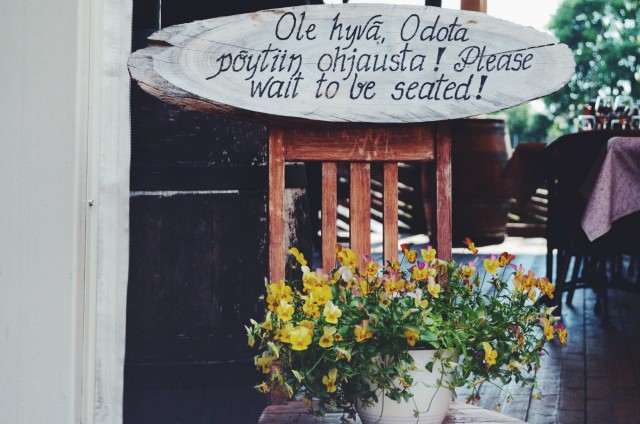 Ole hyvä, Odota
pöytiin ohjausta! Please
wait to be seated!